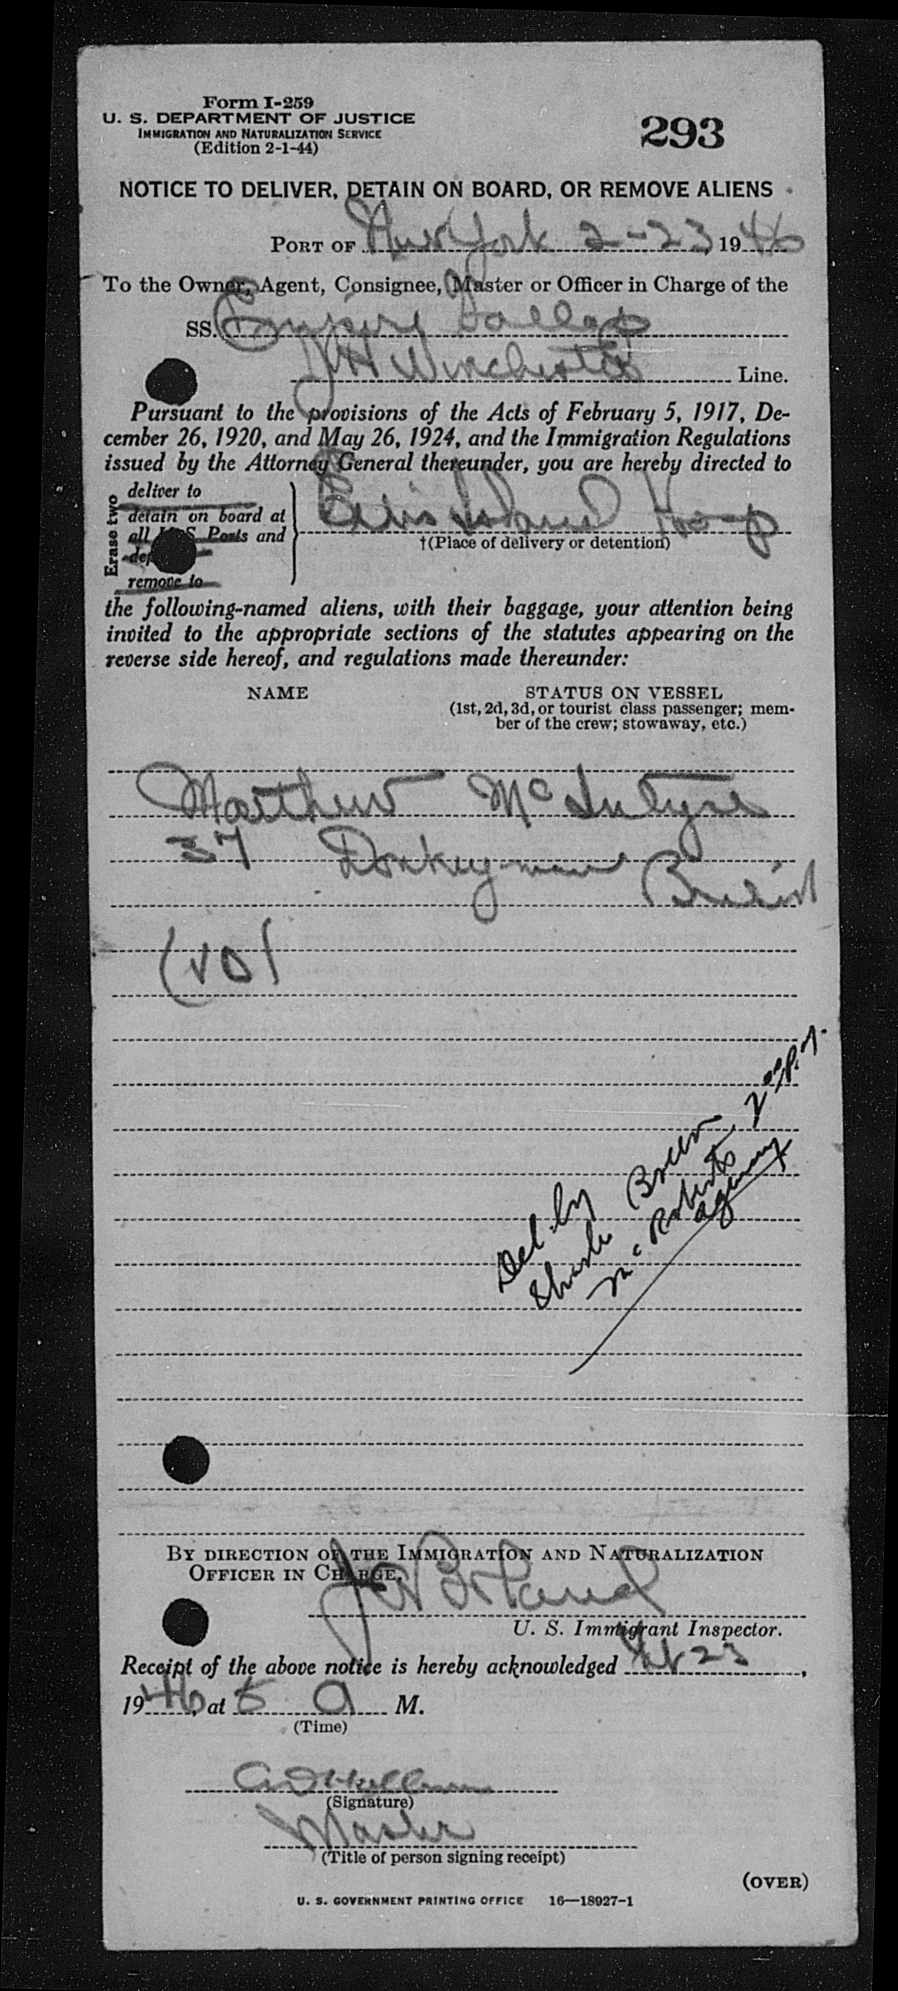 Form I-259
U. S. DEPARTMENT OF JUSTICE
IMMIGRATION AND NATURALIZATION SERVICE
(Edition 2-1-44)
293
NOTICE TO DELIVER, DETAIN ON BOARD, OR REMOVE ALIENS
PORT OF New York 2-23, 1946
To the Owner, Agent, Consignee, Master or Officer in Charge of the
SS. Empire
J H Winchester Line.
Pursuant to the provisions of the Acts of February 5, 1917, De-
cember 26, 1920, and May 26, 1924, and the Immigration Regulations
issued by the Attorney General thereunder, you are hereby directed to
Erase two
deliver to
detain on board at
all U. S. Ports and
remove to
Ellis Island Hosp
†(Place of delivery or detention)
the following-named aliens, with their baggage, your attention being
invited to the appropriate sections of the statutes appearing on the
reverse side hereof, and regulations made thereunder:
NAME STATUS ON VESSEL
(1st, 2d, 3d, or tourist class passenger; mem-
ber of the crew; stowaway, etc.)
Matthew McIntyre
37 Donkeyman British
(VD)
Del. by
Breen 2 00 P.M.
McRoberts
Agency
BY DIRECTION OF THE IMMIGRATION AND NATURALIZATION
OFFICER IN CHARGE.
U. S. Immigrant Inspector.
Receipt of the above notice is hereby acknowledged Feb 23,
1946, at 5 A M.
(Time)
(Signature)
Master
(Title of person signing receipt)
(OVER)
U. S. GOVERNMENT PRINTING OFFICE 16—18927-1